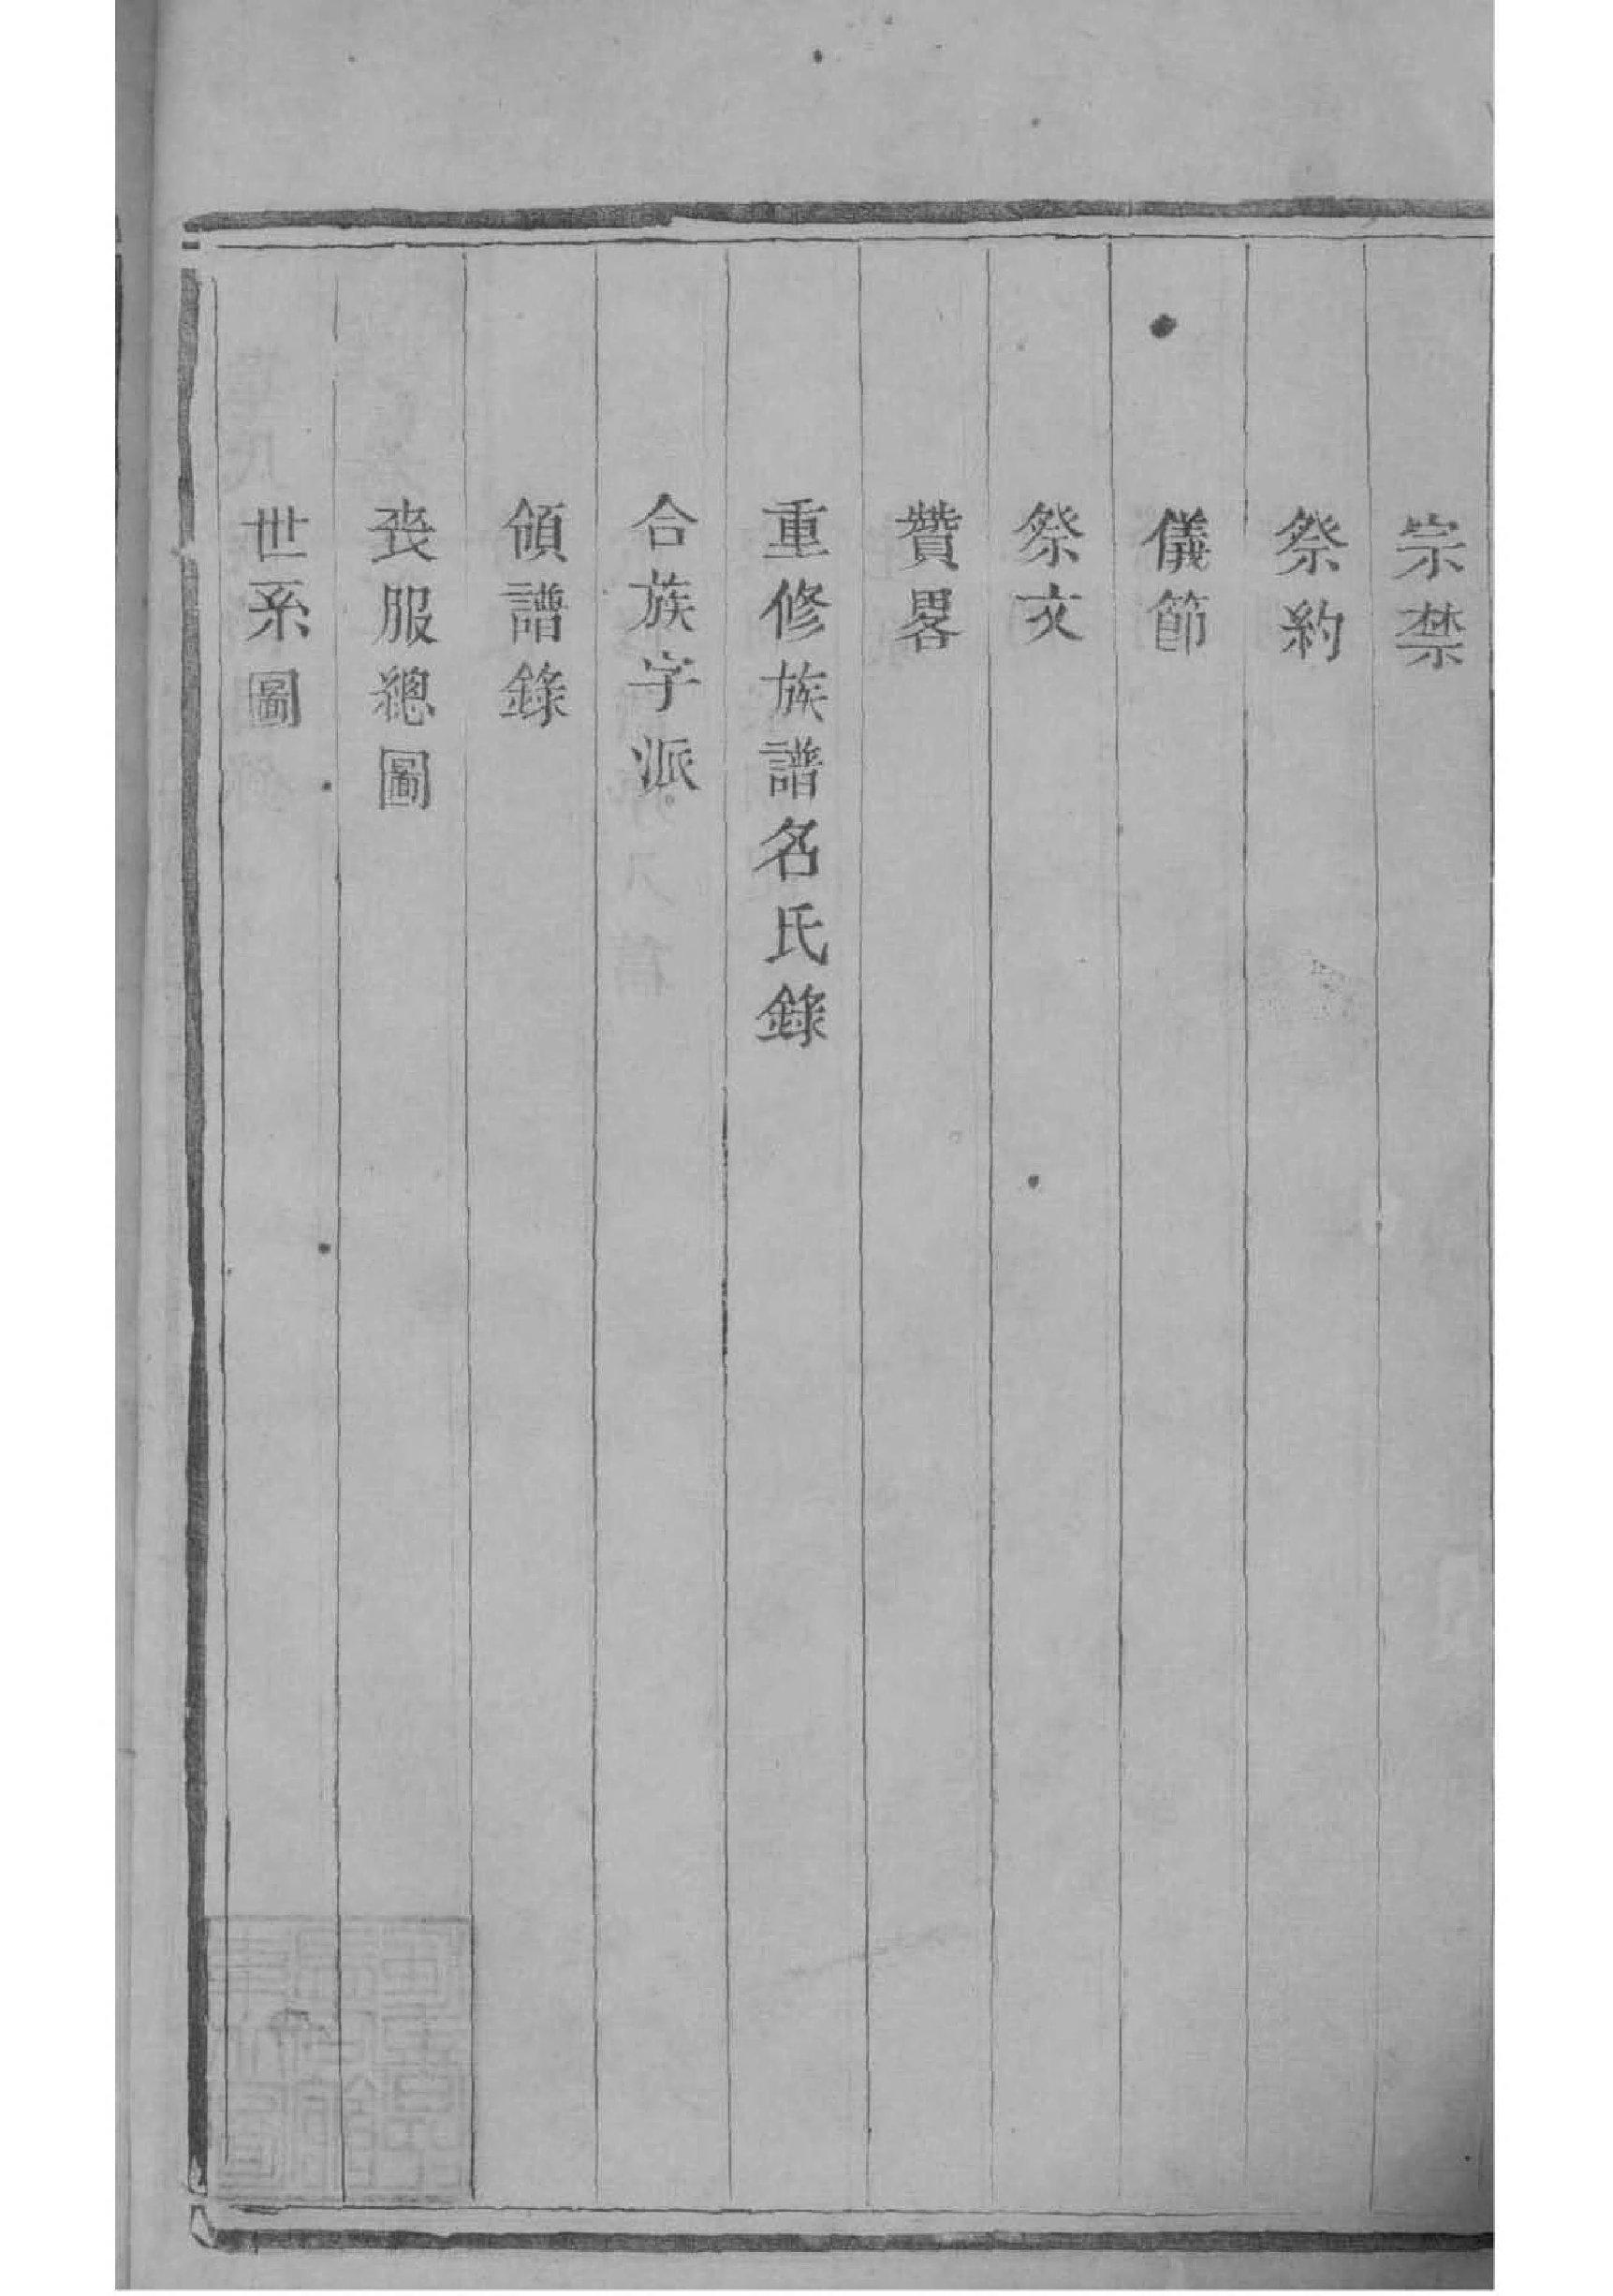 宗禁
祭約
儀節
祭文
贊畧
重修族譜名氏錄
合族字派
領譜錄
喪服總圖
世系圖